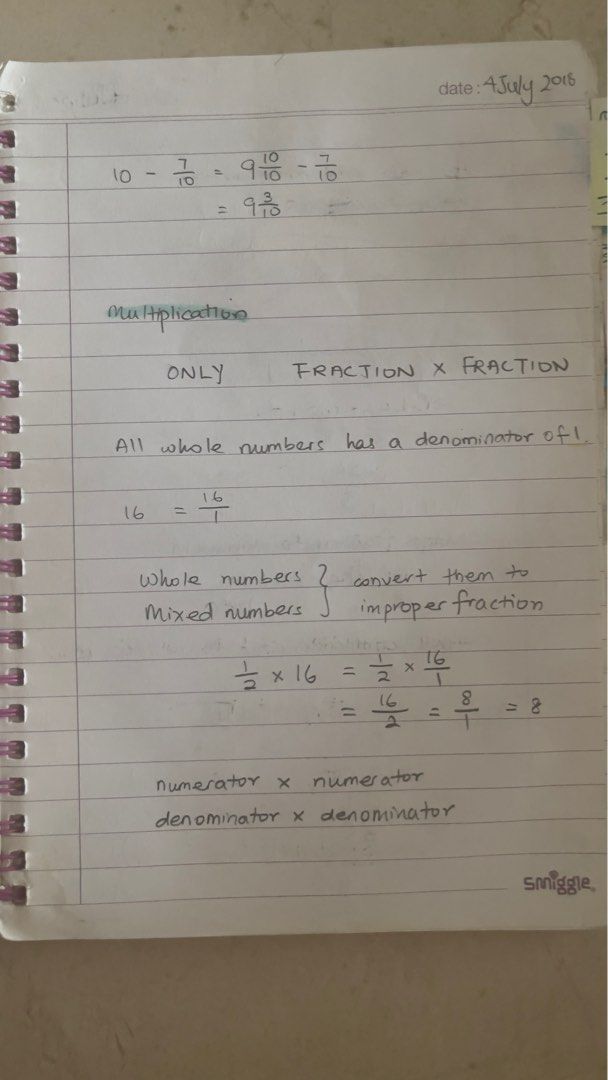 date: 4 July 2018
10 - 7/10 = 9 10/10 - 7/10
= 9 3/10
Multiplication
ONLY FRACTION x FRACTION
All whole numbers has a denominator of 1.
16 = 16/1
Whole numbers } convert them to
Mixed numbers } improper fraction
1/2 x 16 = 1/2 x 16/1
= 16/2 = 8/1 = 8
numerator x numerator
denominator x denominator
smiggle